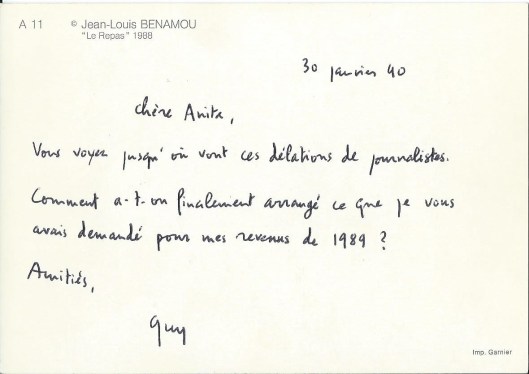 A 11
© Jean-Louis BENAMOU
"Le Repas" 1988
30 janvier 90
Chère Anita,
Vous voyez jusqu'où vont ces délations de journalistes.
Comment a-t-on finalement arrangé ce que je vous
avais demandé pour mes revenus de 1989 ?
Amitiés,
Guy
Imp. Garnier